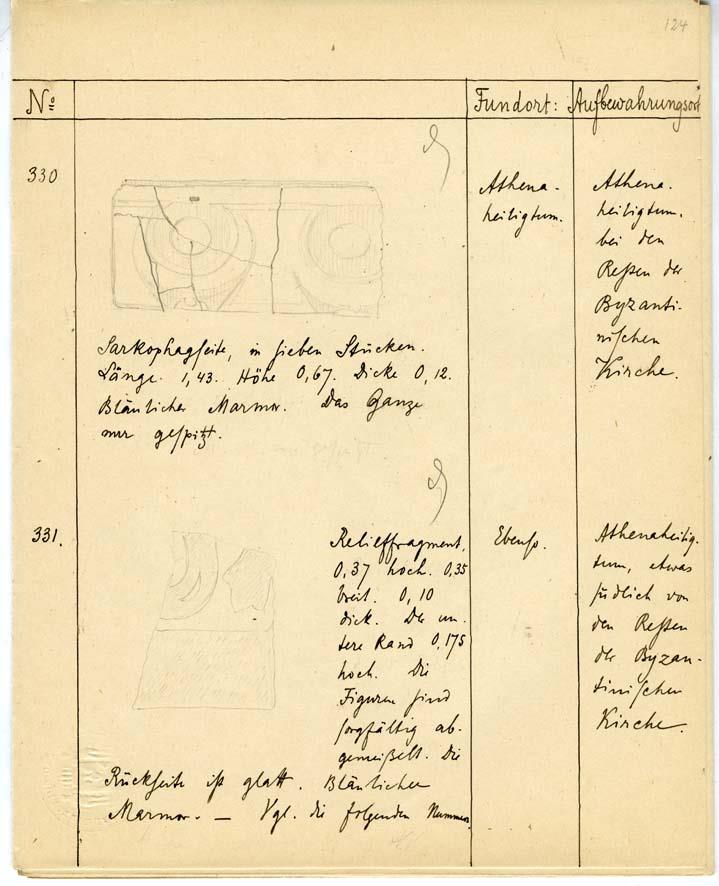 124
No Fundort: Aufbewahrungsort
330
Sarkophagseite, in sieben Stücken.
Länge. 1,43. Höhe 0,67. Dicke 0,12.
Bläulicher Marmor. Das Ganze
nur gespitzt.
Athena-
heiligtum.
Athena-
heiligtum.
bei den
Resten der
Byzanti-
nischen
Kirche.
331.
Relieffragment,
0,37 hoch. 0,35
breit. 0,10
dick. Der un-
tere Rand 0,175
hoch. Die
Figuren sind
sorgfältig ab-
gemeißelt. Die
Rückseite ist glatt. Bläulicher
Marmor. — Vgl. die folgenden Nummern.
Ebenso.
Athenaheilig-
tum, etwas
südlich von
den Resten
der Byzan-
tinischen
Kirche.